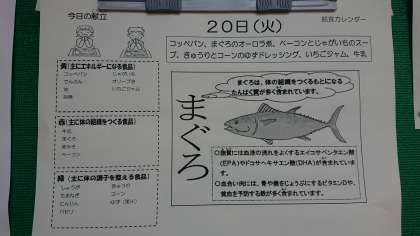 給食カレンダー
今日の献立
20日(火)
コッペパン、まぐろのオーロラ煮、ベーコンとじゃがいものスー
プ、きゅうりとコーンのゆずドレッシング、いちごジャム、牛乳
黄(主にエネルギーになる食品)
コッペパン　じゃがいも
でんぷん　オリーブ油
油　いちごジャム
砂糖
赤(主に体の組織をつくる食品)
牛乳
まぐろ
ベーコン
緑(主に体の調子を整える食品)
しょうが　きゅうり
たまねぎ　コーン
にんじん　ゆず(果汁)
パセリ
まぐろ
まぐろは、体の組織をつくるもとになる
たんぱく質が多く含まれています。
○脂質には血液の流れをよくするエイコサペンタエン酸
(EPA)やドコサヘキサエン酸(DHA)が含まれていま
す。
○血合い肉には、骨や歯をじょうぶにするビタミンDや、
貧血を予防する鉄が多く含まれています。